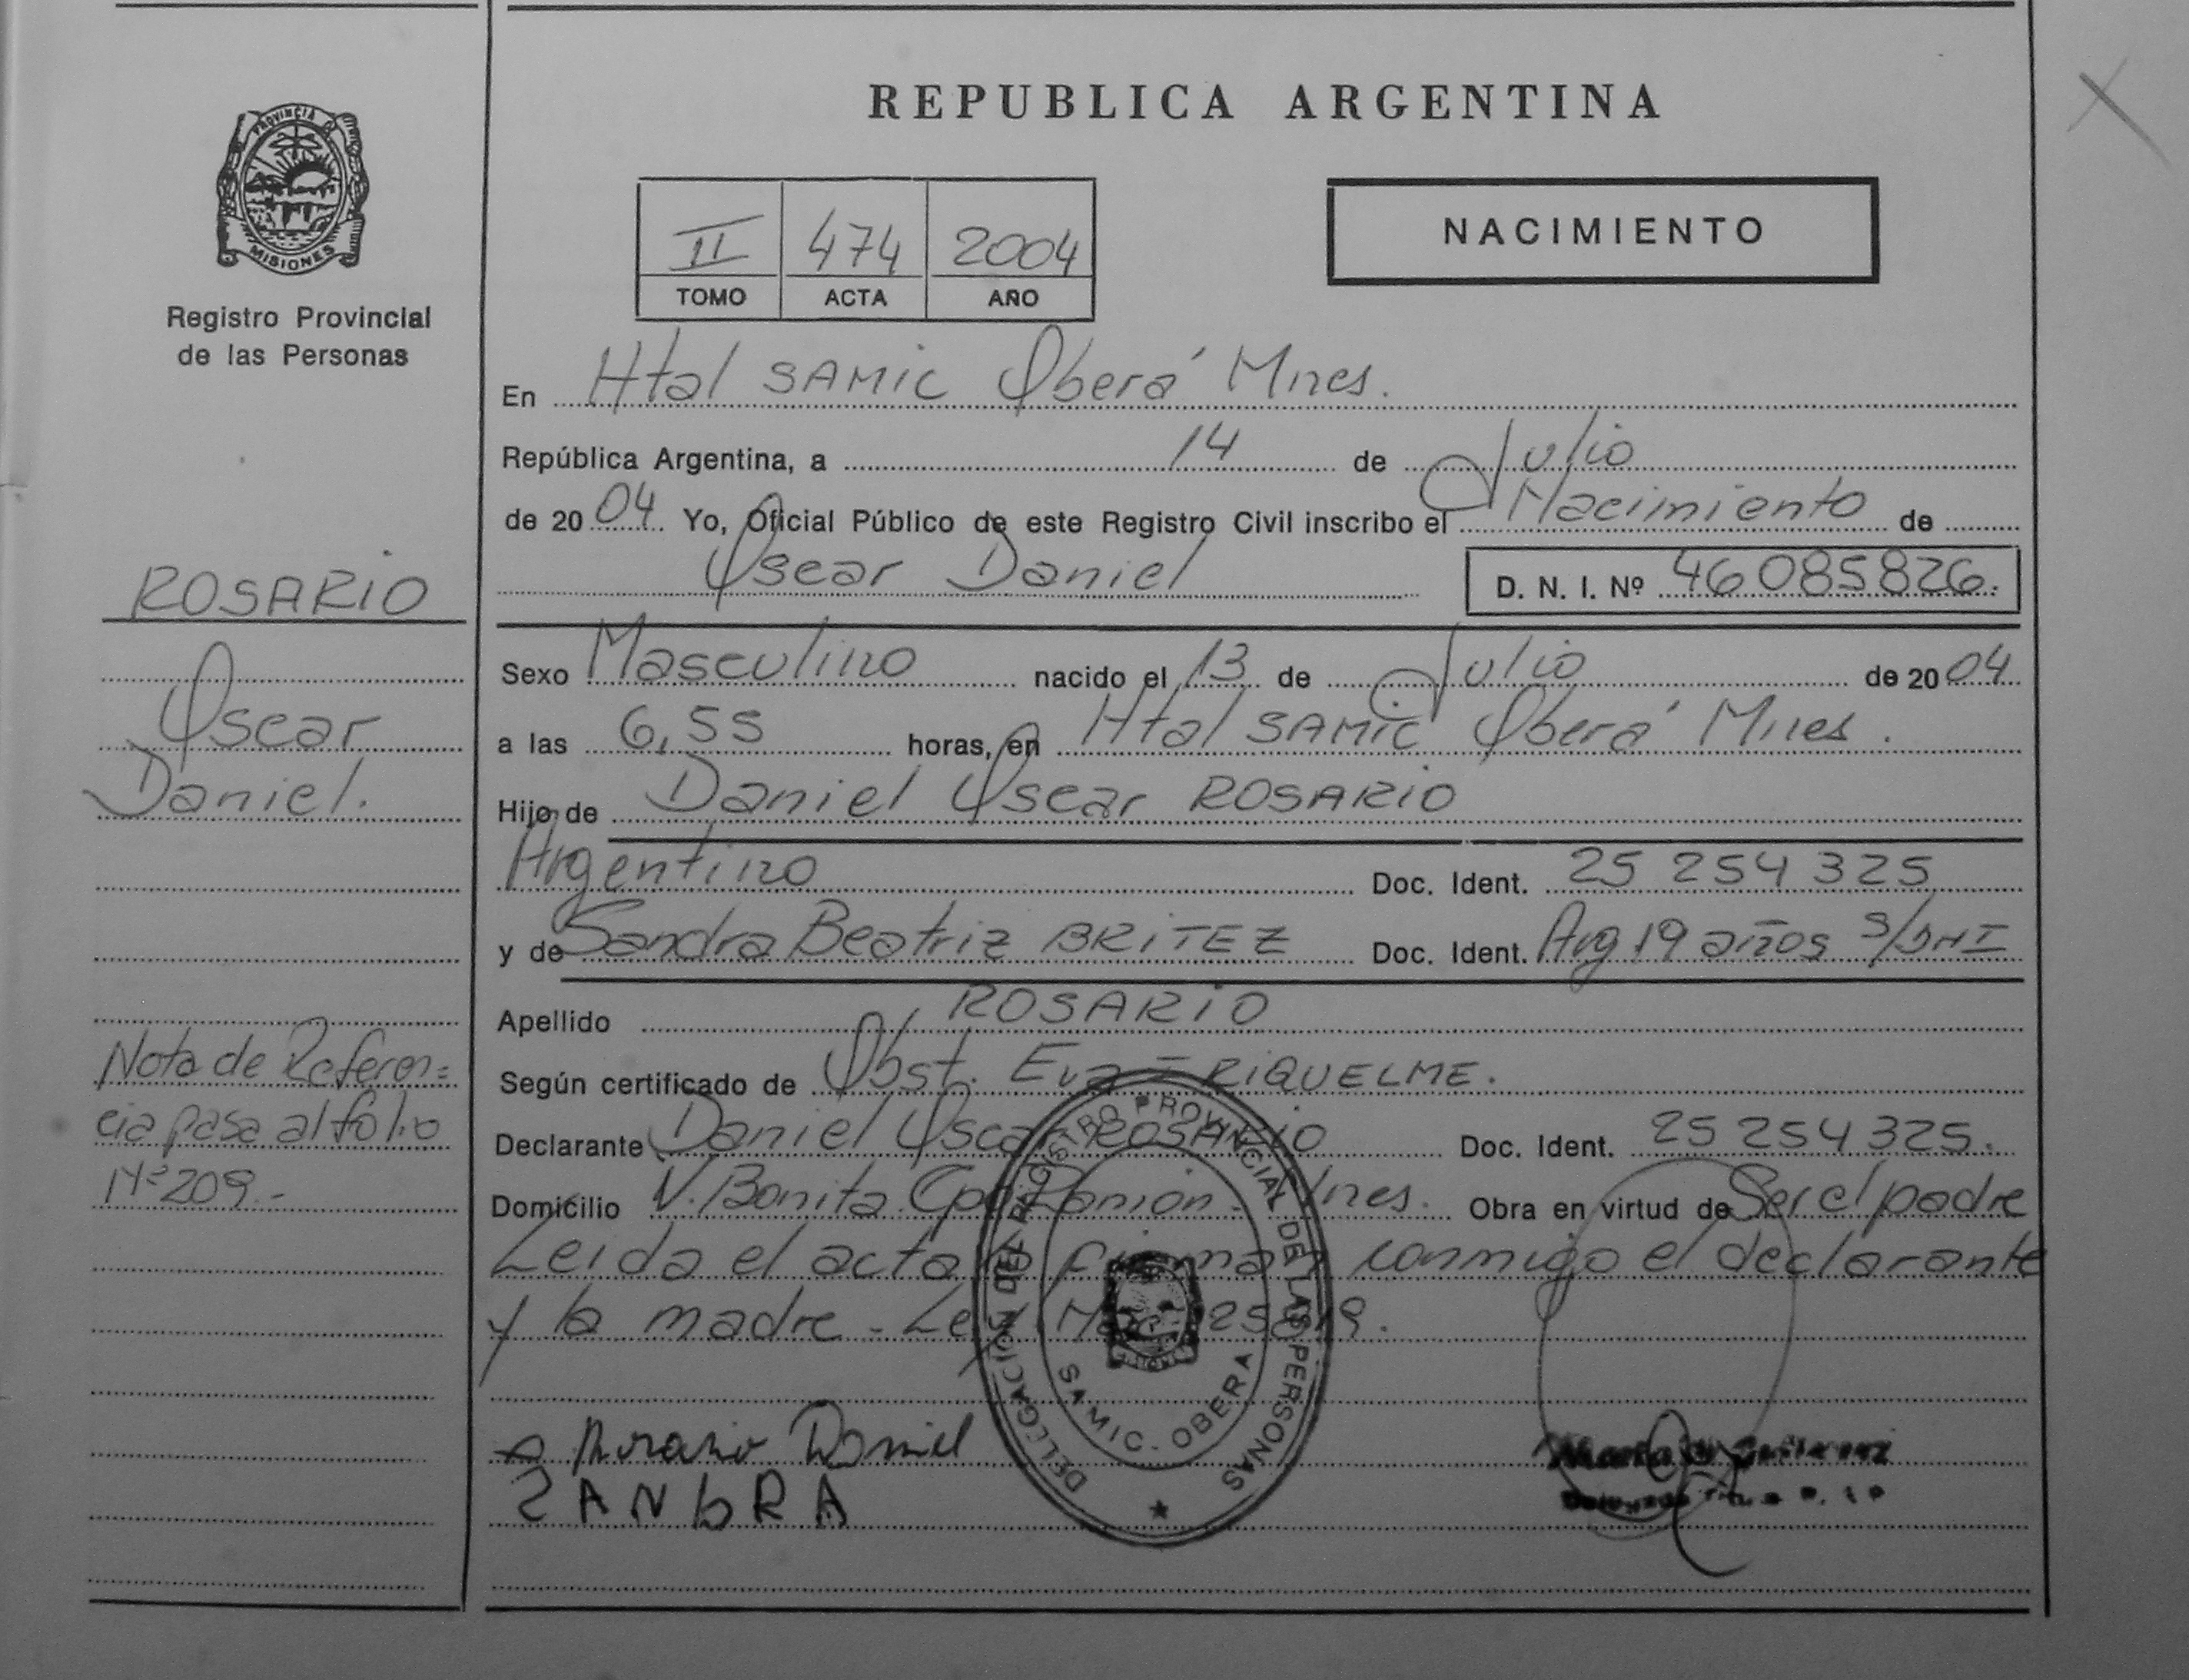 REPUBLICA ARGENTINA
PROVINCIA DE
MISIONES
Registro Provincial
de las Personas
II 474 2004
TOMO ACTA AÑO
NACIMIENTO
En Htal SAMIC Oberá Mnes.
República Argentina, a 14 de Julio
de 20 04 Yo, Oficial Público de este Registro Civil inscribo el Nacimiento de
Oscar Daniel D. N. I. Nº 46085826.
ROSARIO
Oscar
Daniel.
Sexo Masculino nacido el 13 de Julio de 20 04
a las 6,55 horas, en Htal SAMIC Oberá Mnes.
Hijo de Daniel Oscar ROSARIO
Argentino Doc. Ident. 25 254 325
y de Sandra Beatriz BRITEZ Doc. Ident. Arg 19 años S/DNI
Apellido ROSARIO
Nota de Referen=
cia pasa al folio
Nº 209.-
Según certificado de Obst. Eva I RIQUELME.
Declarante Daniel Oscar ROSARIO Doc. Ident. 25 254 325.
Domicilio V. Bonita Cpo Ramón - Mnes. Obra en virtud de Ser el padre
Leida el acta la firman conmigo el declarante
y la madre - Ley
Rosario Daniel
ZANDRA
DELEGACION DEL REGISTRO PROVINCIAL DE LAS PERSONAS
SAMIC - OBERA